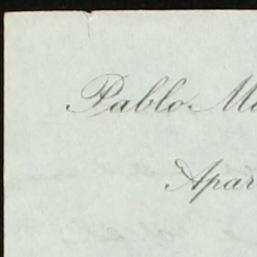 Pablo Ma
Apar